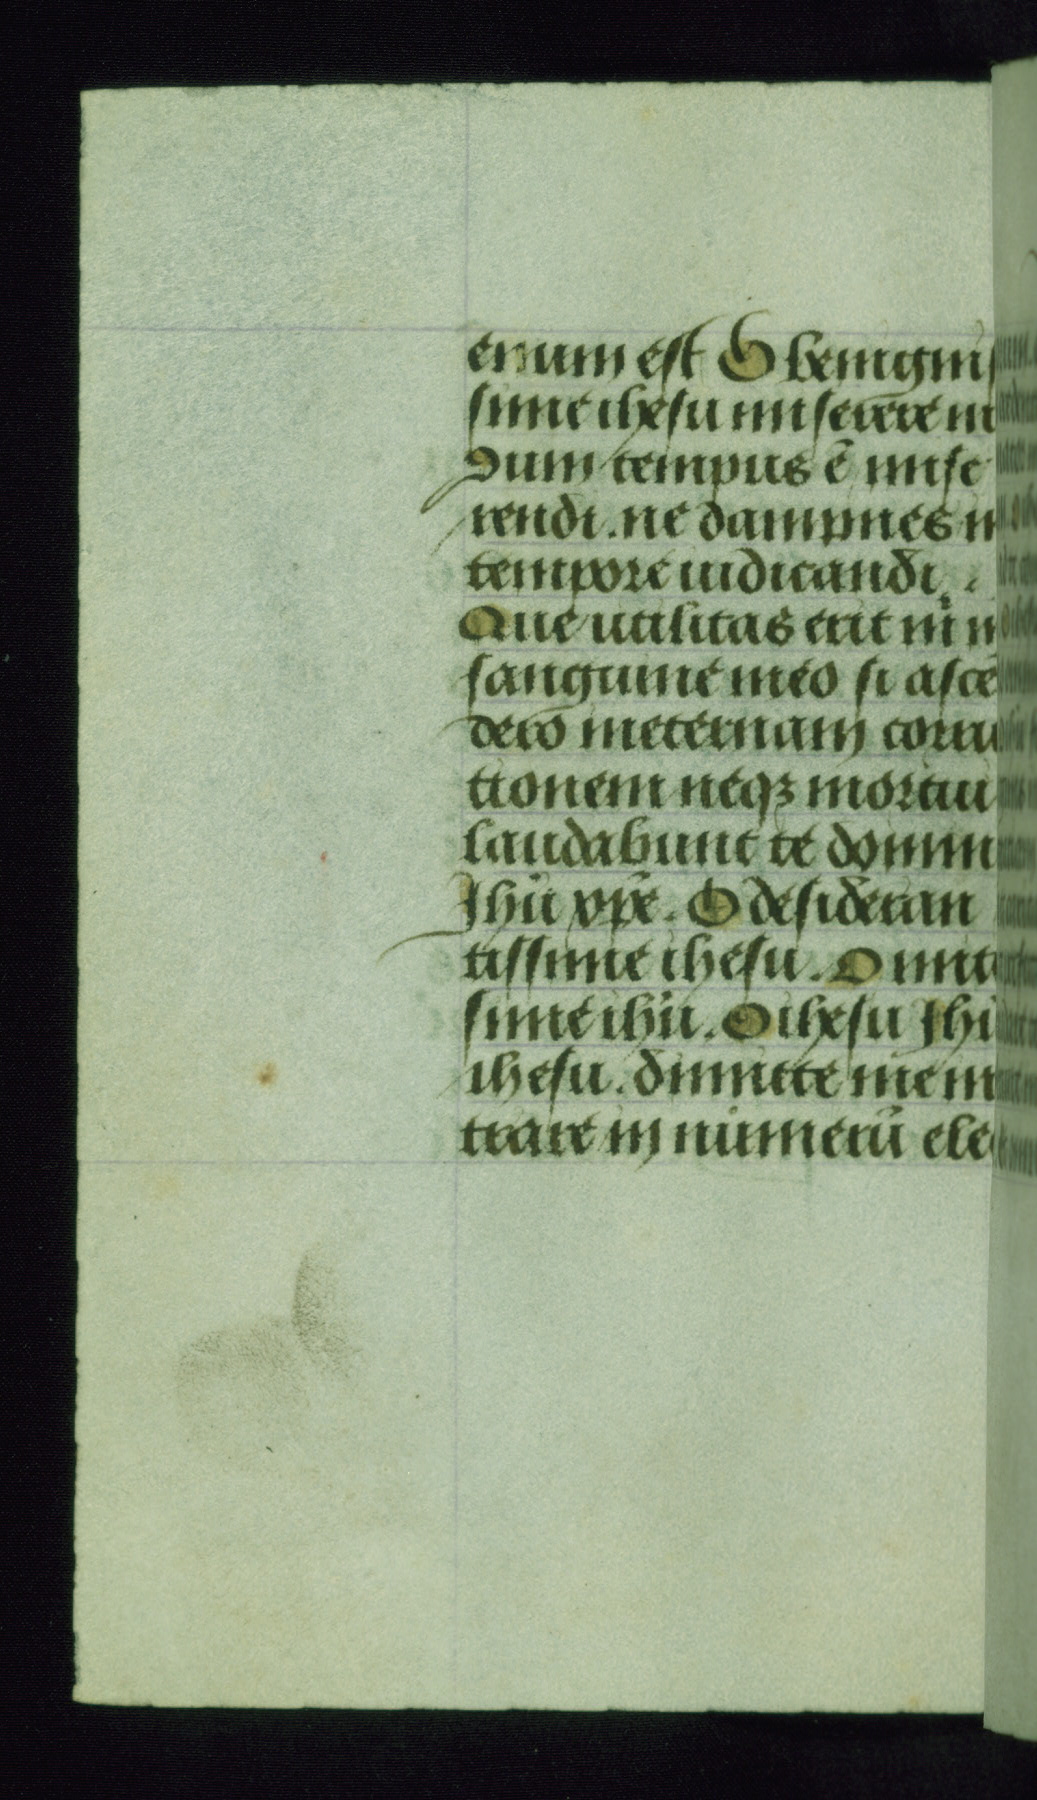 enum est O benignis
sime ihesu miserere m
Dum tempus ē mise
rendi. ne dampnes m
tempore iudicandi.
Que utilitas erit in m
sanguine meo si ascē
dero in eternam corru
tionem neqꝫ mortui
laudabunt te domin
Jhū xp̄e. O desideran
tissime ihesu. O miti
sime ihū. O ihesu Jhū
ihesu. dimitte me in
trare in numerū elec